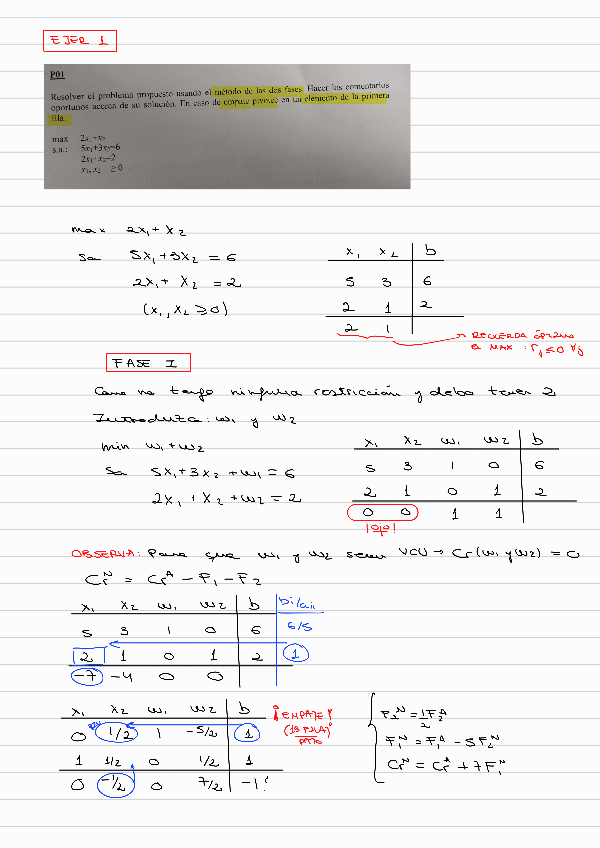 EJER 1
P01
Resolver el problema propuesto usando el método de las dos fases. Hacer los comentarios
oportunos acerca de su solución. En caso de empate pivotee en un elemento de la primera
fila.
max 2x₁+x₂
s.a.: 5x₁+3x₂=6
2x₁+x₂=2
x₁, x₂ ≥0
max 2x₁ + x₂
Sa 5x₁+3x₂ = 6
2x₁+ x₂ = 2
(x₁, x₂ ≥0)
x₁ x₂ b
5 3 6
2 1 2
2 1
RECUERDA ÓPTIMO
a MAX : rj ≤ 0 ∀j
FASE I
Como no tengo ninguna restricción y debo tener 2
Introduzco: w₁ y w₂
min w₁+w₂
Sa 5x₁+3x₂+w₁ = 6
2x₁ + x₂ + w₂ = 2
x₁ x₂ w₁ w₂ b
5 3 1 0 6
2 1 0 1 2
0 0 1 1
¡ojo!
OBSERVA: Para que w₁ y w₂ sean VCU → Cr(w₁ y w₂) = 0
Crᴺ = Crᴬ - F₁ - F₂
x₁ x₂ w₁ w₂ b bi/aij
5 3 1 0 6 6/5
2 1 0 1 2 1
-7 -4 0 0
x₁ x₂ w₁ w₂ b
0 1/2 1 -5/2 1
1 1/2 0 1/2 1
0 -1/2 0 7/2 -1
¡EMPATE!
(1ª FILA)
F₂ᴺ = 1/2 F₂ᴬ
F₁ᴺ = F₁ᴬ - 5F₂ᴺ
Crᴺ = Crᴬ + 7F₁ᴺ